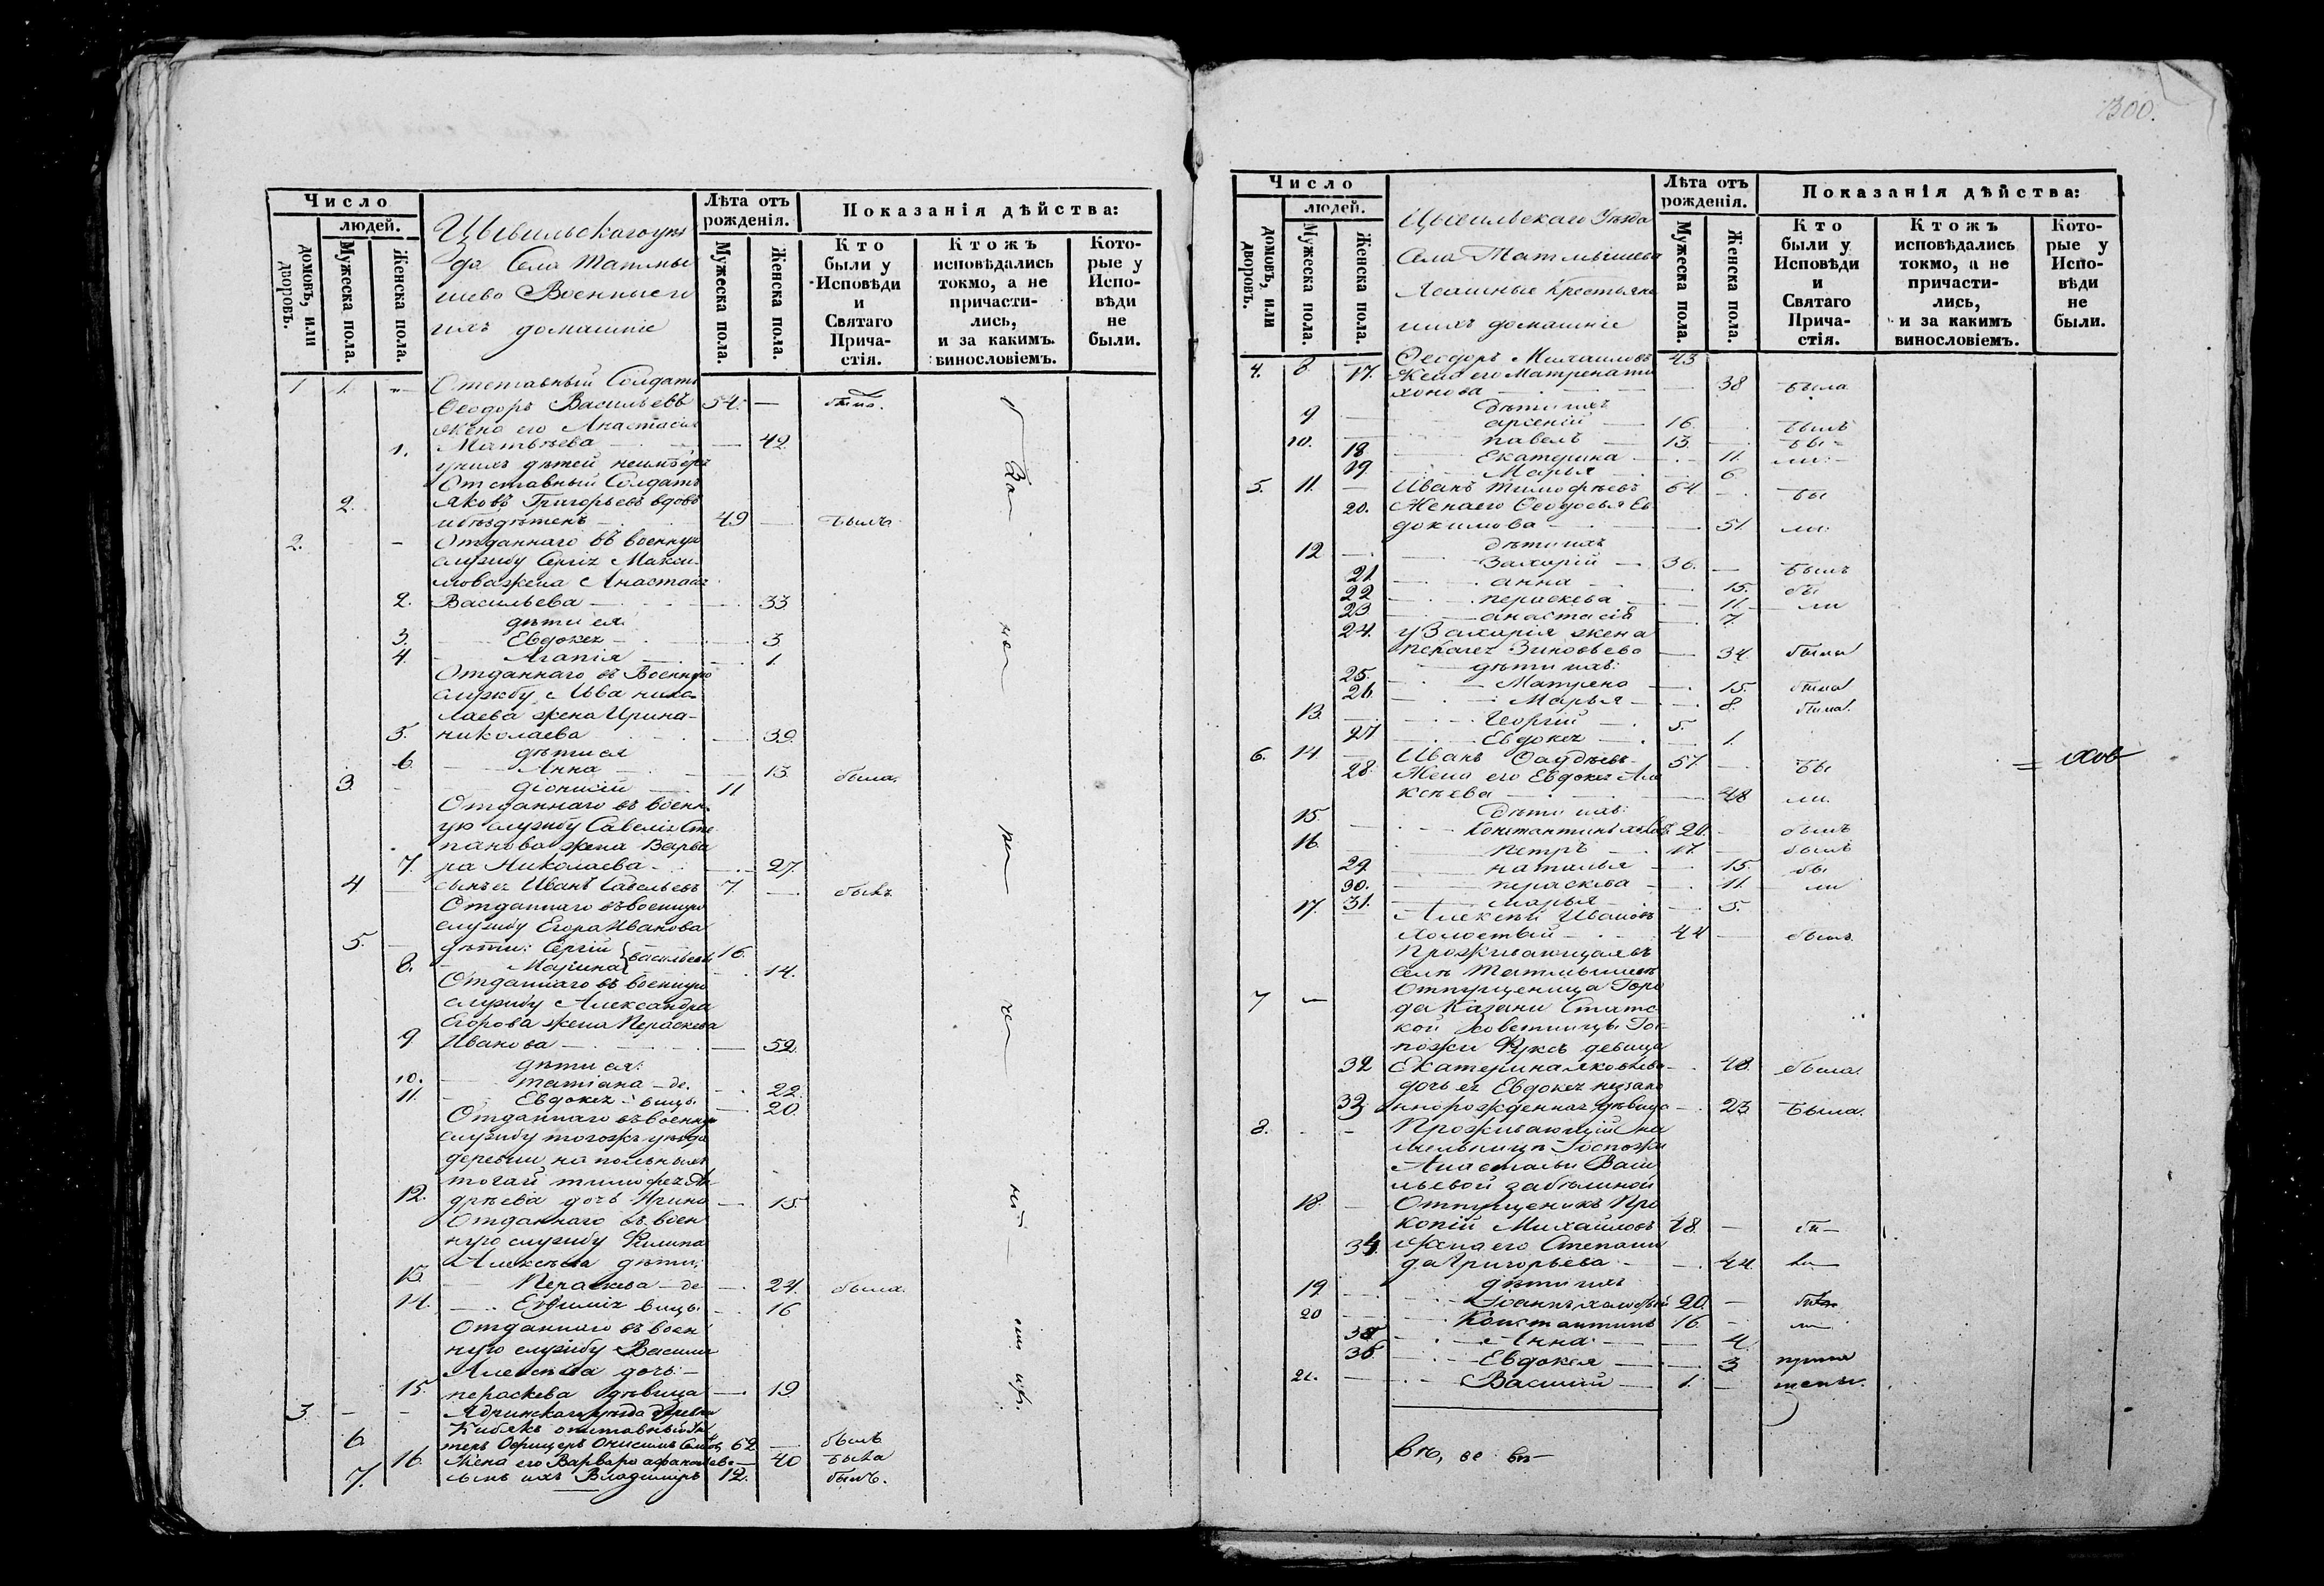 Число
людей.
домовъ, или дворовъ.
Мужеска пола.
Женска пола.
Цывильскаго уѣз
да Села Татмы
шево Военные и
ихъ домашніе
Лѣта отъ рожденія.
Мужеска пола.
Женска пола.
Показанія дѣйства:
Кто были у Исповѣди и Святаго Причастія.
Ктожъ исповѣдались токмо, а не причастились, и за какимъ винословіемъ.
Которые у Исповѣди не были.
1 1. — Отставный Солдатъ
Ѳеодоръ Васильевъ 54. —
жена его Анастасия
1. Матвѣева — 42
Отставный Солдатъ
2. Яковъ Григорьевъ вдовъ
и бездѣтенъ — 49 — былъ
2. — Отданнаго въ военную
службу Сергія Макси
мова жена Анастасія
2. Васильева — 33
дѣти ея
3. Евдокея — 3
4. Агапія — 1.
Отданнаго въ Военную
службу Льва Нико
лаева жена Ирина
5. Николаева — 39.
дѣти ея
6. Анна — 13 была.
3. Діонисій — 11
Отданнаго въ военн
ую службу Савелія Сте
панова жена Варва
7. ра Николаева — 27.
4 — сынъ ея Иванъ Савельевъ 7. — былъ
Отданнаго въ военную
службу Егора Иванова
5. — дѣти: Сергій 16.
8. Марина 14.
Отданнаго въ военную
службу Александра
Егорова жена Пераскева
9 Иванова — 52.
дѣти ея:
10. Татіана — де. 22.
11. Евдокея — вицы. 20.
Отданнаго въ военную
службу тогожъ уѣзда
деревни
Тимофея Ан
12. дрѣева дочь Ирина — 15.
Отданнаго въ воен
ную службу Филипа
Алексѣева дѣти:
13. Пераскева — де 24. была.
14. Евфимія вицы. 16
Отданнаго въ воен
ную службу Василия
Алексѣева дочь —
15. пераскева дѣвица — 19
3. — — Ядринскаго уѣзда деревни
6. Офицеръ Онисимъ 62 — былъ
16. Жена его Варвара — 40 была
7. сынъ ихъ Владимиръ 12. былъ.
300.
Число
людей.
домовъ, или дворовъ.
Мужеска пола.
Женска пола.
Цывильскаго Уѣзда
Села Татмышева
Ясашные Крестьяне
и ихъ домашніе
Лѣта отъ рожденія.
Мужеска пола.
Женска пола.
Показанія дѣйства:
Кто были у Исповѣди и Святаго Причастія.
Ктожъ исповѣдались токмо, а не причастились, и за какимъ винословіемъ.
Которые у Исповѣди не были.
4. 8 Ѳеодоръ Михаиловъ 43
17. Жена его Матрена Ти
хонова — 38 была
дѣти ихъ
9 — арсеній — 16. былъ
10. — павелъ — 13. — бы
18 Екатерина — 11. ли
19 Марья 6
5. 11. — Иванъ Тимофѣевъ 64. — бы
20. Жена его Ѳеодосья Ев
докимова — 51 ли.
дѣти ихъ
12 — Захарій — 36. — былъ
21 анна 15. бы
22 пераскева 11. ли
23 анастасія 7.
24. у Захарія жена
Зиновьева — 34 была
дѣти ихъ:
25. Матрена 15. была
26 Марья — 8. была.
13. Георгій — 5.
27 Евдокея — 1.
6. 14 — Иванъ Ѳаддѣевъ 57. — бы
28. Жена его Евдокея Але
ксѣева — 48 ли.
Дѣти ихъ:
15. Константинъ 20. былъ
16. петръ — 17. былъ
29 наталья — 15. бы
30. пераскева — 11. ли
31. марья — 5.
17. Алексѣй Ивановъ
холостый — 44 — былъ
Проживающая въ
селѣ Татмышевѣ
Отпущеница Горо
7 — да Казани Статс
кой Совѣтницы Гос
пожи Фуксъ девица
32 Екатерина Яковлева — 48. была.
дочь ея Евдокея незако
33. ннорожденная дѣвица — 23 была.
8. — — Проживающій на
мельницѣ Госпожи
Анастасьи Васи
льевой Забѣлиной
18. — Отпущеникъ Про
копій Михайловъ 48. — бы
34. Жена его Степани
да Григорьева — 44. ли
дѣти ихъ
19 Іоаннъ холостый 20. —
20 Константинъ 16.
35 Анна — 4
36. Евдокея — 3 прича
21. — Василій — 1. — щены.